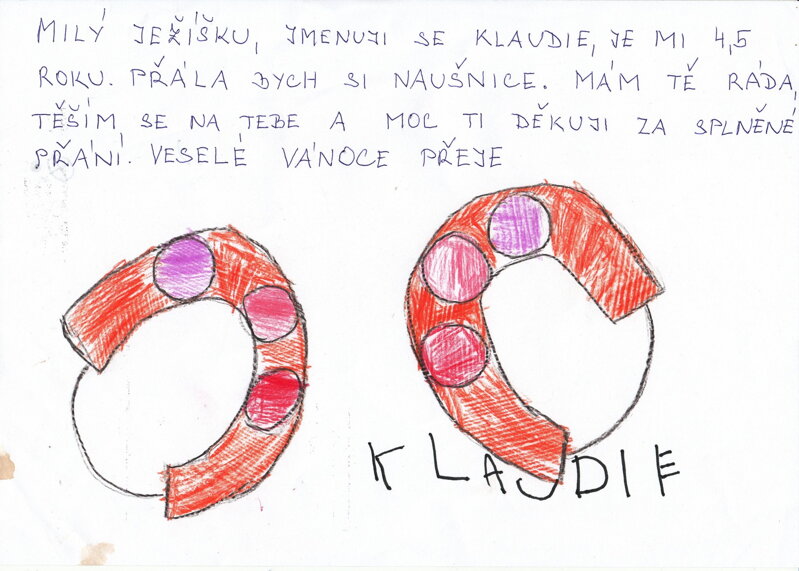 MILÝ JEŽÍŠKU, JMENUJI SE KLAUDIE, JE MI 4,5
ROKU. PŘÁLA BYCH SI NAUŠNICE. MÁM TĚ RÁDA,
TĚŠÍM SE NA TEBE A MOC TI DĚKUJI ZA SPLNĚNÉ
PŘÁNÍ. VESELÉ VÁNOCE PŘEJE
KLAUDIE